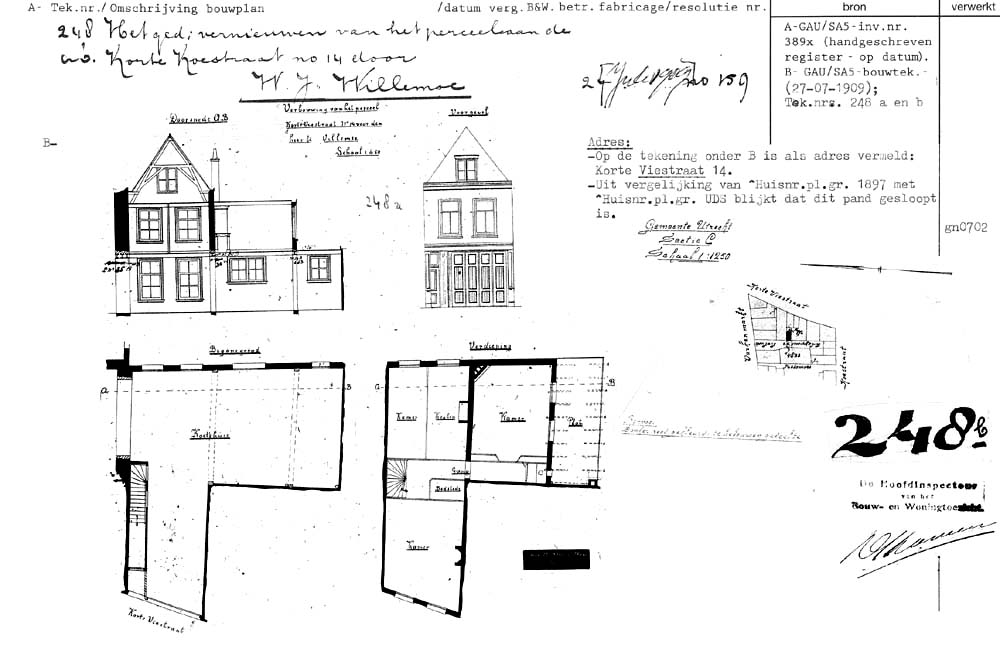 A- Tek.nr./Omschrijving bouwplan /datum verg.B&W. betr. fabricage/resolutie nr. bron verwerkt
248 Het ged; vernieuwen van het perceel aan de
Korte Koestraat no 14 door
W. J. Willemse
no 159
A-GAU/SA5-inv.nr.
389x (handgeschreven
register - op datum).
B- GAU/SA5-bouwtek.-
(27-07-1909);
Tek.nrs. 248 a en b
B-
Doorsnede A.B
Verbouwing van het perceel
Korte Viestraat No 14 voor den
heer Willemse
Schaal
Voorgevel
248a
Adres:
-Op de tekening onder B is als adres vermeld:
Korte Viestraat 14.
-Uit vergelijking van ^Huisnr.pl.gr. 1897 met
^Huisnr.pl.gr. UDS blijkt dat dit pand gesloopt
is.
gn0702
Gemeente Utrecht
Sectie C
Schaal 1:1250
Korte Viestraat
Viestraat
Begane grond
Verdieping
A
B
Koetshuis
Kamer
Keuken
Kamer
Plat
Gang
Bedstede
Kamer
Korte Viestraat
248b
De Hoofdinspecteur
van het
Bouw- en Woningtoezicht.